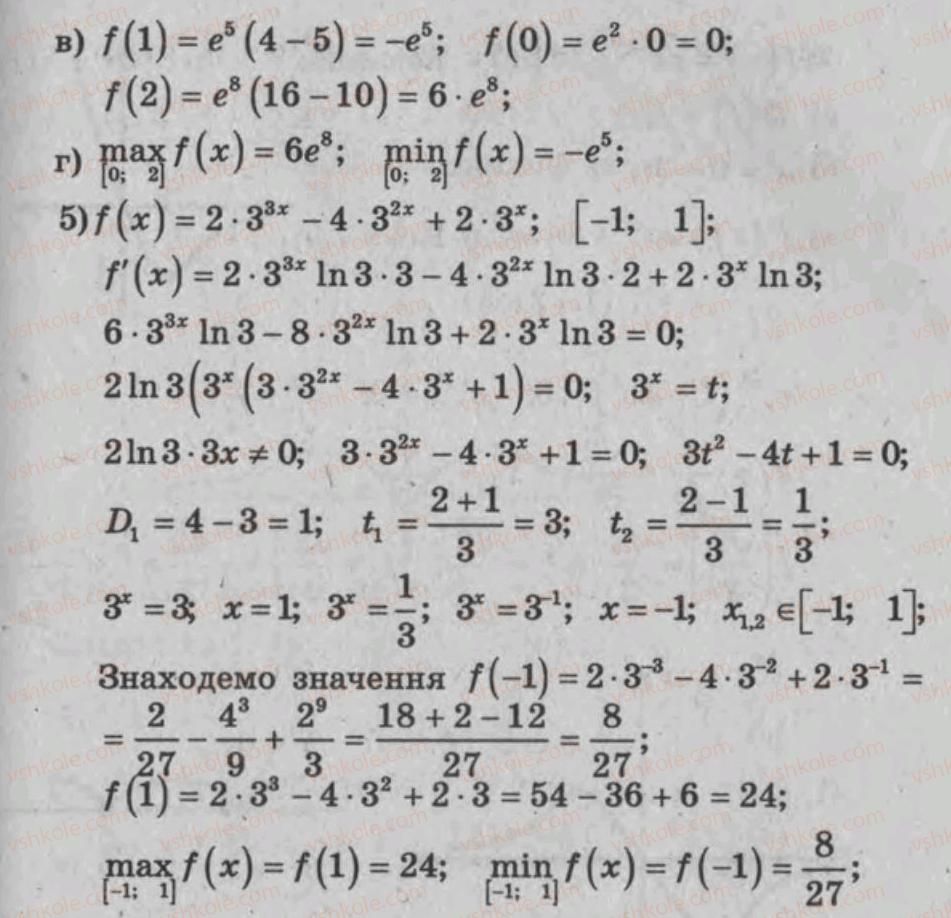 в) f(1) = e⁵(4 − 5) = −e⁵; f(0) = e² · 0 = 0;
f(2) = e⁸(16 − 10) = 6 · e⁸;
г) max f(x) = 6e⁸; min f(x) = −e⁵;
[0; 2] [0; 2]
5) f(x) = 2 · 3³ˣ − 4 · 3²ˣ + 2 · 3ˣ; [−1; 1];
f′(x) = 2 · 3³ˣ ln 3 · 3 − 4 · 3²ˣ ln 3 · 2 + 2 · 3ˣ ln 3;
6 · 3³ˣ ln 3 − 8 · 3²ˣ ln 3 + 2 · 3ˣ ln 3 = 0;
2 ln 3(3ˣ(3 · 3²ˣ − 4 · 3ˣ + 1) = 0; 3ˣ = t;
2 ln 3 · 3x ≠ 0; 3 · 3²ˣ − 4 · 3ˣ + 1 = 0; 3t² − 4t + 1 = 0;
D₁ = 4 − 3 = 1; t₁ = (2 + 1)/3 = 3; t₂ = (2 − 1)/3 = 1/3;
3ˣ = 3; x = 1; 3ˣ = 1/3; 3ˣ = 3⁻¹; x = −1; x₁,₂ ∈ [−1; 1];
Знаходемо значення f(−1) = 2 · 3⁻³ − 4 · 3⁻² + 2 · 3⁻¹ =
= 2/27 − 4³/9 + 2⁹/3 = (18 + 2 − 12)/27 = 8/27;
f(1) = 2 · 3³ − 4 · 3² + 2 · 3 = 54 − 36 + 6 = 24;
max f(x) = f(1) = 24; min f(x) = f(−1) = 8/27;
[−1; 1] [−1; 1]
vshkole.com